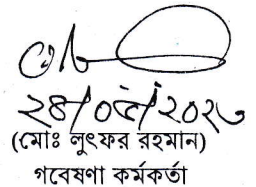 ২৪/০৫/২০২৩
(মোঃ লুৎফর রহমান)
গবেষণা কর্মকর্তা